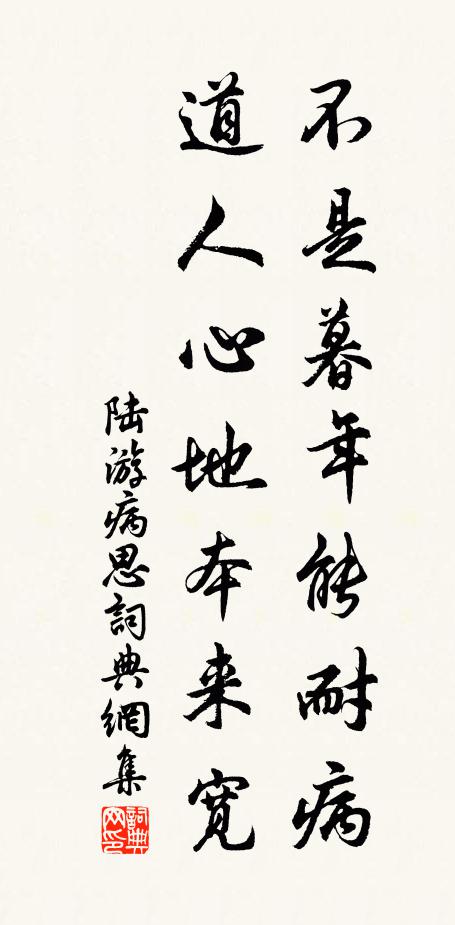 不是暮年能耐病
道人心地本来寛
陆游病思詞典網集
詞典网印